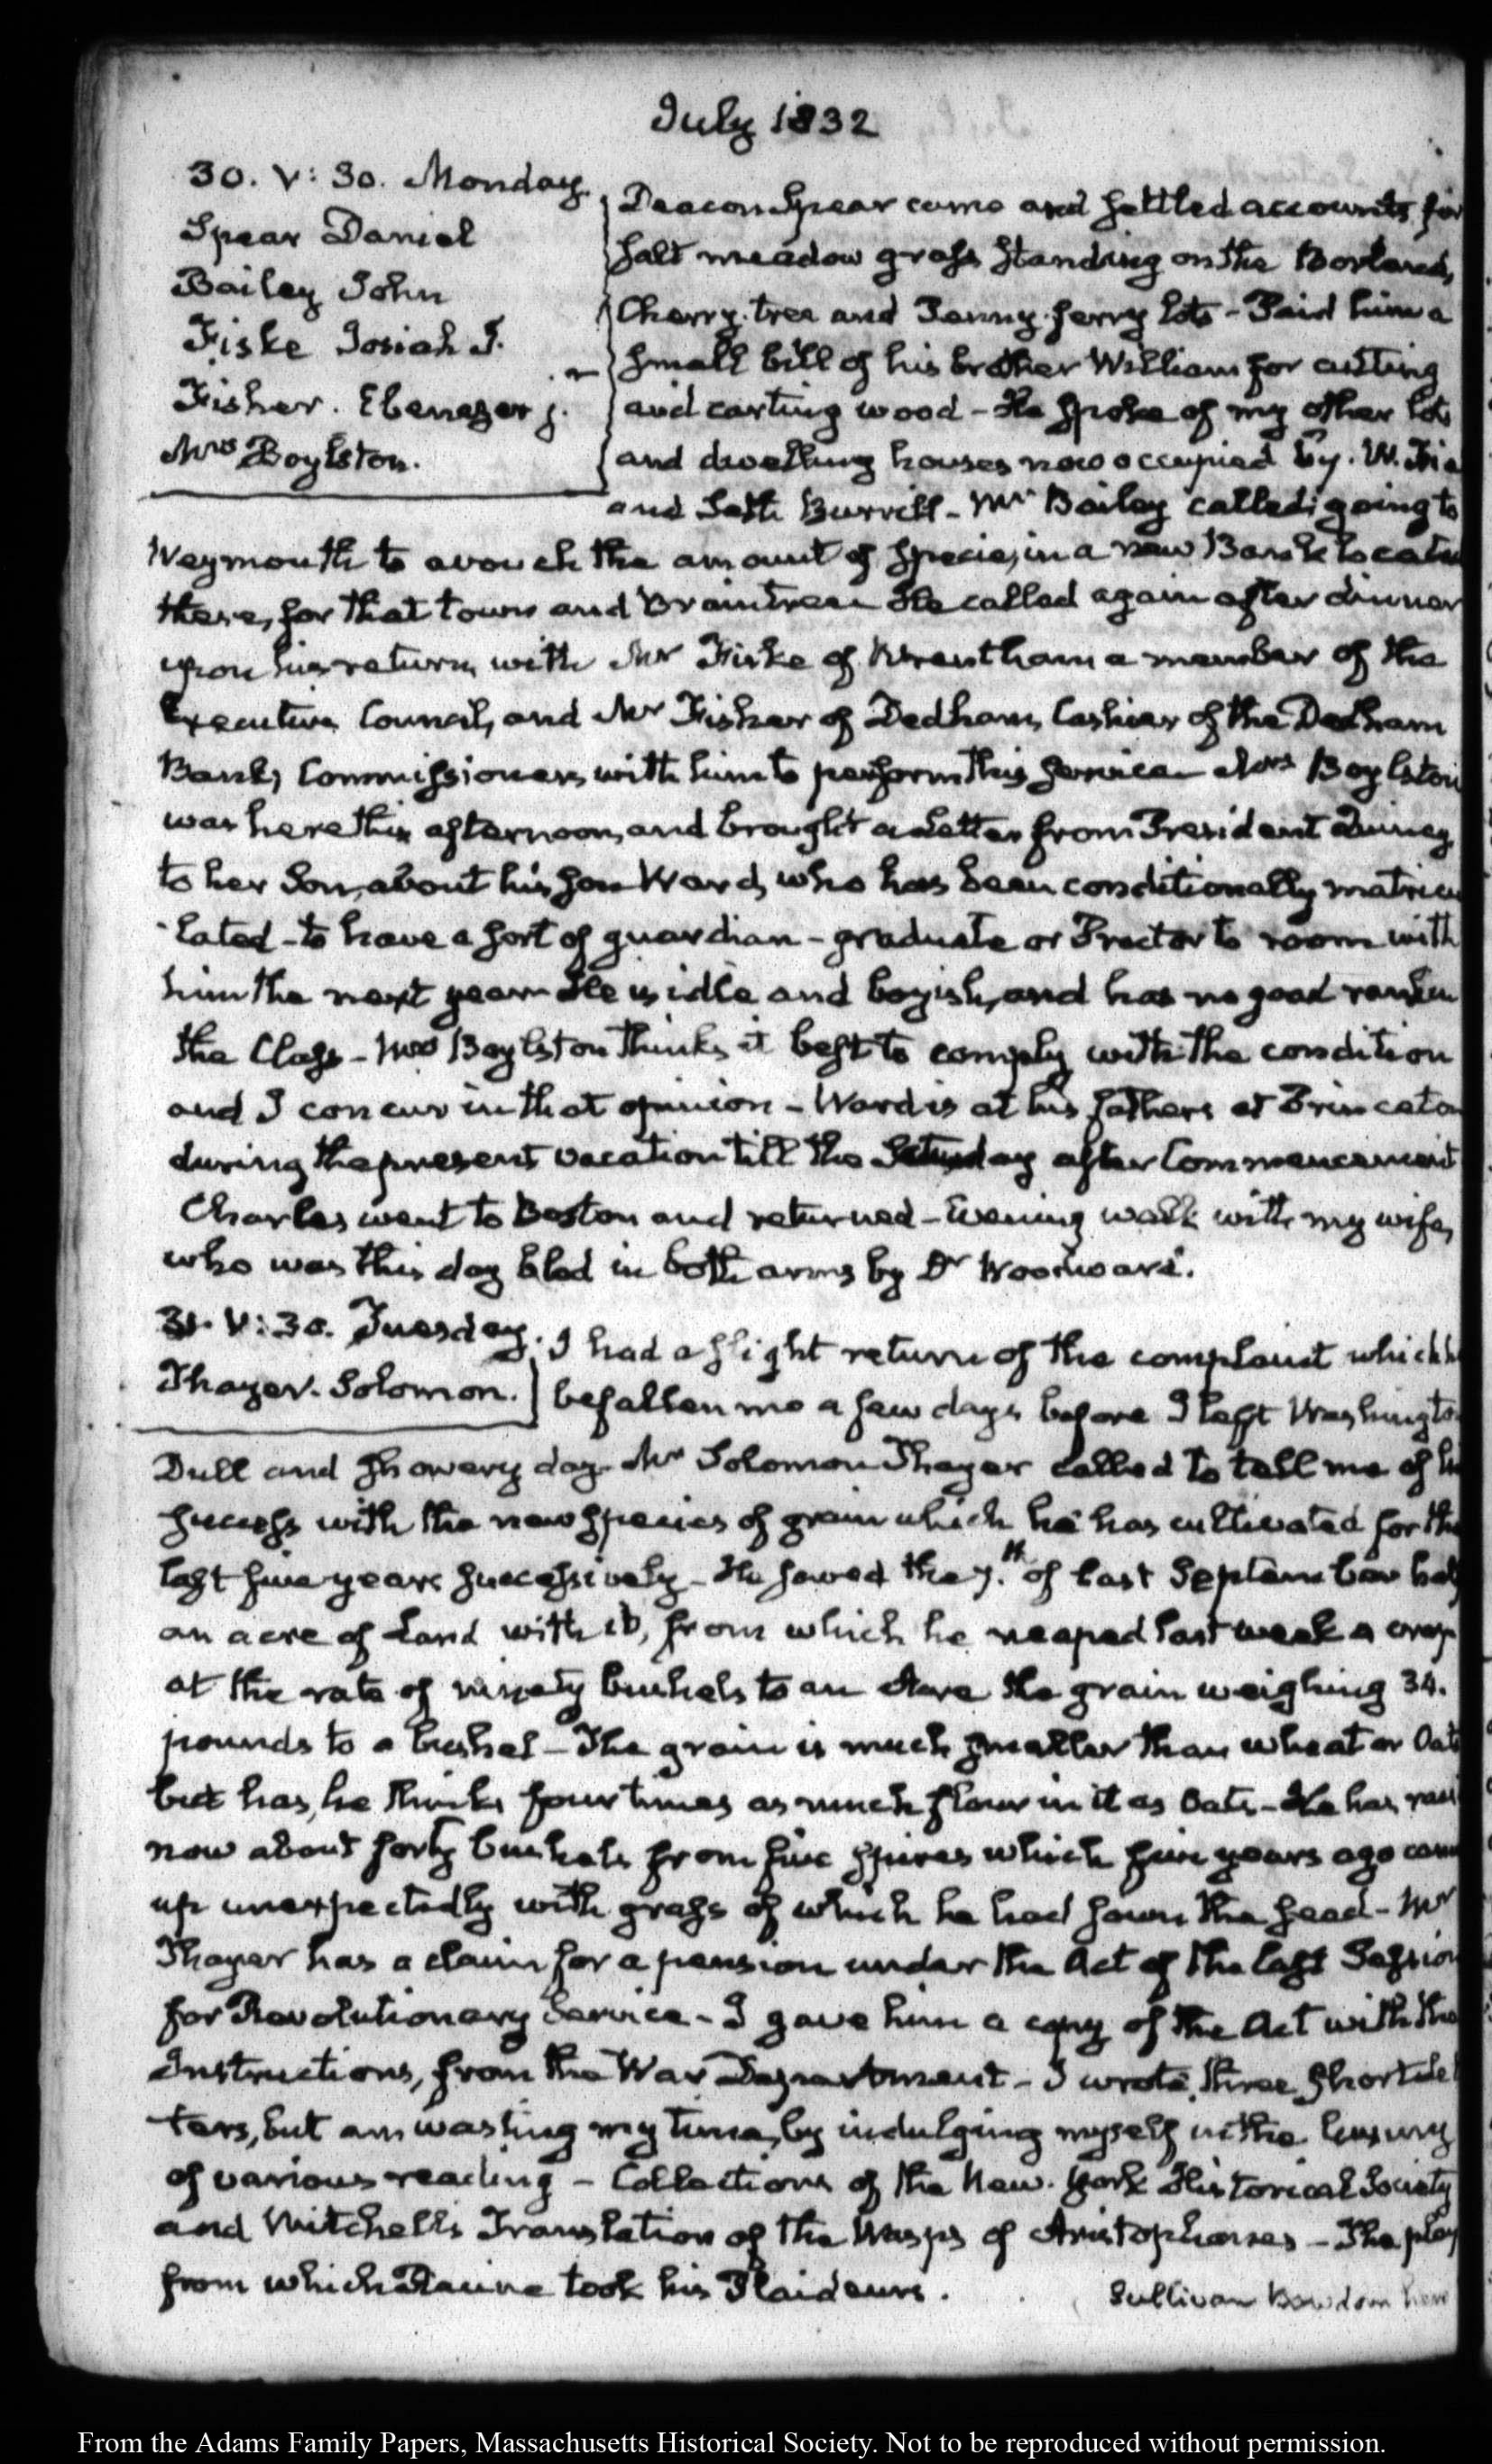 July 1832
30. V: 30. Monday.
Spear Daniel
Bailey John
Fiske Josiah J.
Fisher. Ebenezer j.
Mrs Boylston.
Deacon Spear came and settled accounts for
salt meadow grass standing on the Borland,
Cherry-tree and Penny-ferry lots - Paid him a
small bill of his brother William for cutting
and carting wood - He spoke of my other lots
and dwelling houses now occupied by. W.
and Seth Burrell - Mr Bailey called, going to
Weymouth to avouch the amount of specie, in a new Bank located
there, for that town and Braintree He called again after dinner
upon his return, with Mr Fiske of Wrentham a member of the
Executive Council, and Mr Fisher of Dedham, Cashier of the Dedham
Bank, Commissioners, with him to perform this service - Mrs Boylston
was here this afternoon, and brought a Letter from President Quincy,
to her Son, about his son Ward, who has been conditionally matricu
-lated - to have a sort of guardian - graduate or Proctor to room with
him the next year - He is idle and boyish, and has no good rank in
the Class - Mrs Boylston thinks it best to comply with the condition
and I concur in that opinion - Ward is at his fathers at Princeton
during the present vacation till the Saturday after Commencement
Charles went to Boston and returned - Evening walk with my wife,
who was this day bled in both arms by Dr Woodward.
31. V: 30. Tuesday.
Thayer. Solomon.
I had a slight return of the complaint which h
befallen me a few days before I left Washington
Dull and showery day. Mr Solomon Thayer called to tell me of his
success with the new species of grain which he has cultivated for the
last five years successively - He sowed the 7.th of last September half
an acre of Land with it, from which he reaped last week a crop
at the rate of ninety bushels to an Acre the grain weighing 34.
pounds to a bushel - The grain is much smaller than wheat or Oats
but has, he thinks four times as much flour in it as Oats - He has rais
now about forty bushels from five spires which five years ago came
up unexpectedly with grass of which he had sown the seed - Mr
Thayer has a claim for a pension under the Act of the last Session
for Revolutionary Service - I gave him a copy of the Act with the
Instructions, from the War Department - I wrote three short let
ters, but am wasting my time, by indulging myself in the luxury
of various reading - Collections of the New-York Historical Society
and Mitchell's Translation of the Wasps of Aristophanes - The play
from which Racine took his Plaideurs.
Sullivan Bowdoin here
From the Adams Family Papers, Massachusetts Historical Society. Not to be reproduced without permission.